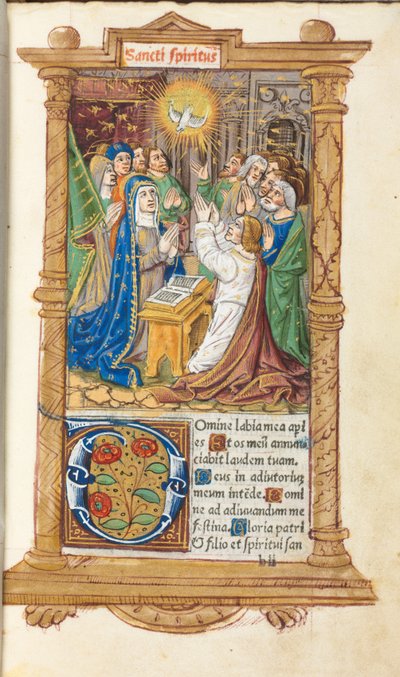 Sancti spiritus
Domine labia mea apı
es Et os meū annun
ciabit laudem tuam.
Deus in adiutoriuz
meum intēde. Domi
ne ad adiuuandum me
festina. Gloria patri
& filio et spiritui san
b ii